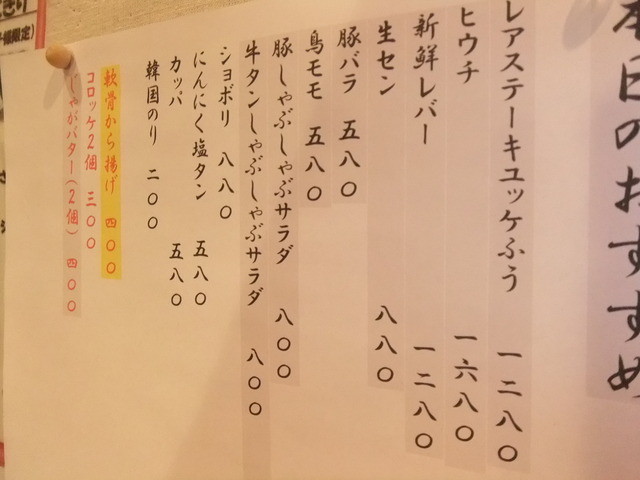 本日のおすすめ
レアステーキユッケふう 一二八〇
ヒウチ 一六八〇
新鮮レバー 一二八〇
生セン 八八〇
豚バラ 五八〇
鳥モモ 五八〇
豚しゃぶしゃぶサラダ 八〇〇
牛タンしゃぶしゃぶサラダ 八〇〇
ショボリ 八八〇
にんにく塩タン 五八〇
カッパ 五八〇
韓国のり 二〇〇
軟骨から揚げ 四〇〇
コロッケ2個 三〇〇
じゃがバター(2個) 四〇〇